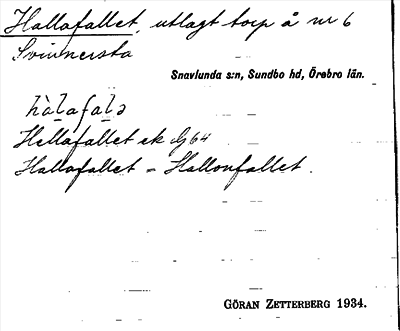 Hallafallet, utlagt torp å nr 6
Svinnersta
Snavlunda s:n, Sundbo hd, Örebro län.
hàlafalə
Hallafallet ek 64
Hallafallet = Hallonfallet.
GÖRAN ZETTERBERG 1934.